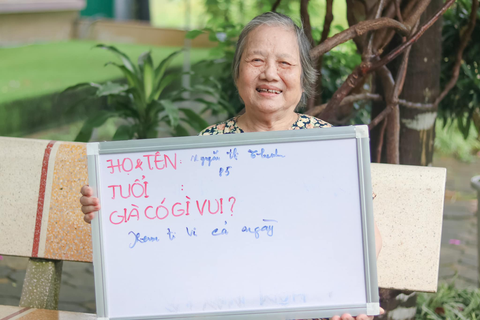 HỌ & TÊN: Nguyễn Thị Thanh
TUỔI: 85
GIÀ CÓ GÌ VUI?
Xem ti vi cả ngày